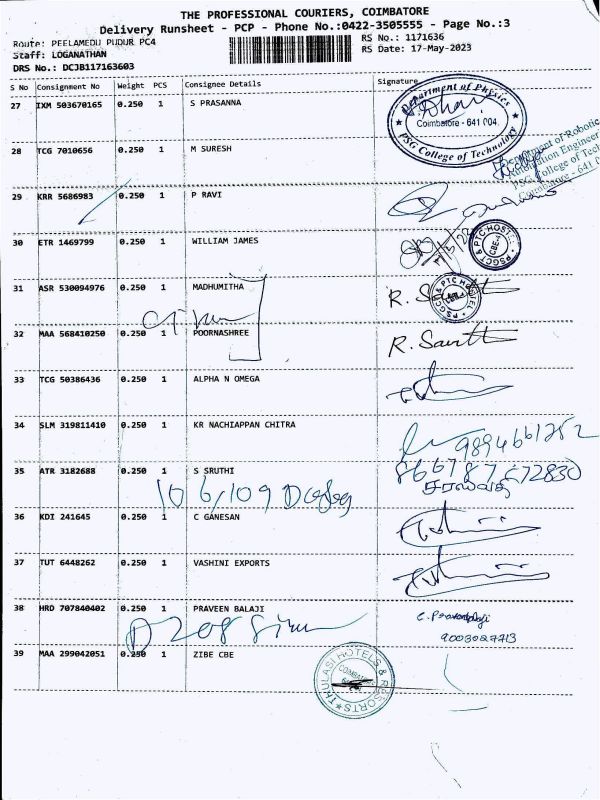 THE PROFESSIONAL COURIERS, COIMBATORE
Delivery Runsheet - PCP - Phone No.:0422-3505555 - Page No.:3
Route: PEELAMEDU PUDUR PC4
RS No.: 1171636
Staff: LOGANATHAN
RS Date: 17-May-2023
DRS No.: DCJB117163603
S No Consignment No Weight PCS Consignee Details Signature
27 IXM 503670165 0.250 1 S PRASANNA
Department of Physics
Coimbatore - 641 004.
PSG College of Technology
28 TCG 7010656 0.250 1 M SURESH
Department of Robotic
Automation Engineer
PSG College of Tech
Coimbatore - 641 0
29 KRR 5686983 0.250 1 P RAVI
30 ETR 1469799 0.250 1 WILLIAM JAMES
PSGCT & PTC HOSTEL
CBE-4
31 ASR 530094976 0.250 1 MADHUMITHA
PSGCT & PTC HOSTEL
32 MAA 568410250 0.250 1 POORNASHREE
33 TCG 50386436 0.250 1 ALPHA N OMEGA
34 SLM 319811410 0.250 1 KR NACHIAPPAN CHITRA
35 ATR 3182688 0.250 1 S SRUTHI
36 KDI 241645 0.250 1 C GANESAN
37 TUT 6448262 0.250 1 VASHINI EXPORTS
38 HRD 707840402 0.250 1 PRAVEEN BALAJI
9003027713
39 MAA 299042051 0.250 1 ZIBE CBE
THULASI HOTELS & RESORTS